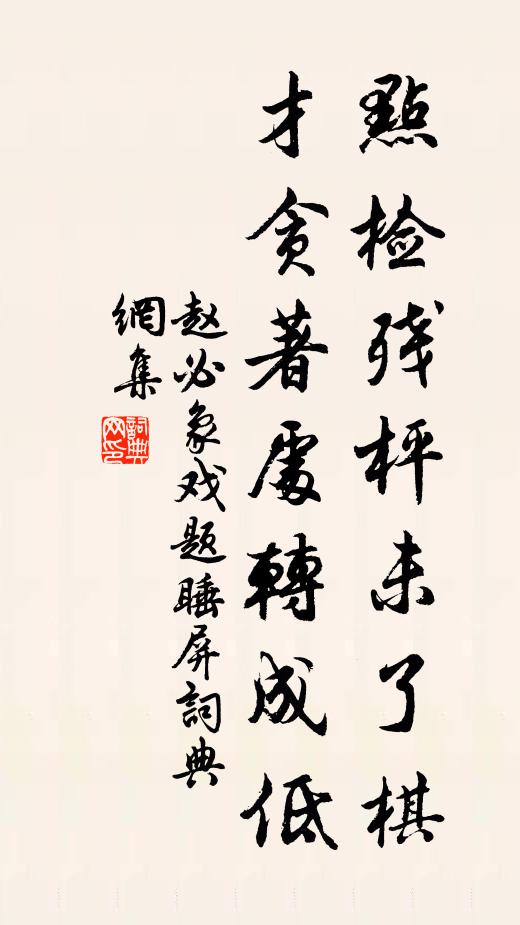 點检残枰未了棋
才贪著處轉成低
赵必象戏题睡屏詞典
網集
詞典網印